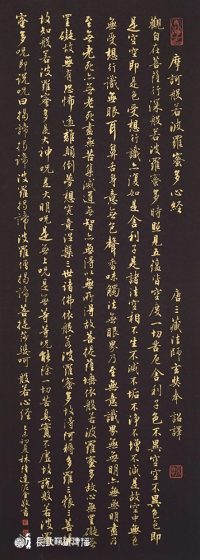 摩訶般若波羅蜜多心經
唐三藏法師玄奘奉詔譯
觀自在菩薩行深般若波羅蜜多時照見五蘊皆空度一切苦厄舍利子色不異空空不異色色即
是空空即是色受想行識亦復如是舍利子是諸法空相不生不滅不垢不淨不增不減是故空中無色
無受想行識無眼耳鼻舌身意無色聲香味觸法無眼界乃至無意識界無無明亦無無明盡乃
至無老死亦無老死盡無苦集滅道無智亦無得以無所得故菩提薩埵依般若波羅蜜多故心無罣礙無
罣礙故無有恐怖遠離顛倒夢想究竟涅槃三世諸佛依般若波羅蜜多故得阿耨多羅三藐三菩提
故知般若波羅蜜多是大神咒是大明咒是無上咒是無等等咒能除一切苦真實不虛故說般若波羅
蜜多咒即說咒曰揭諦揭諦波羅揭諦波羅僧揭諦菩提薩婆訶般若心經